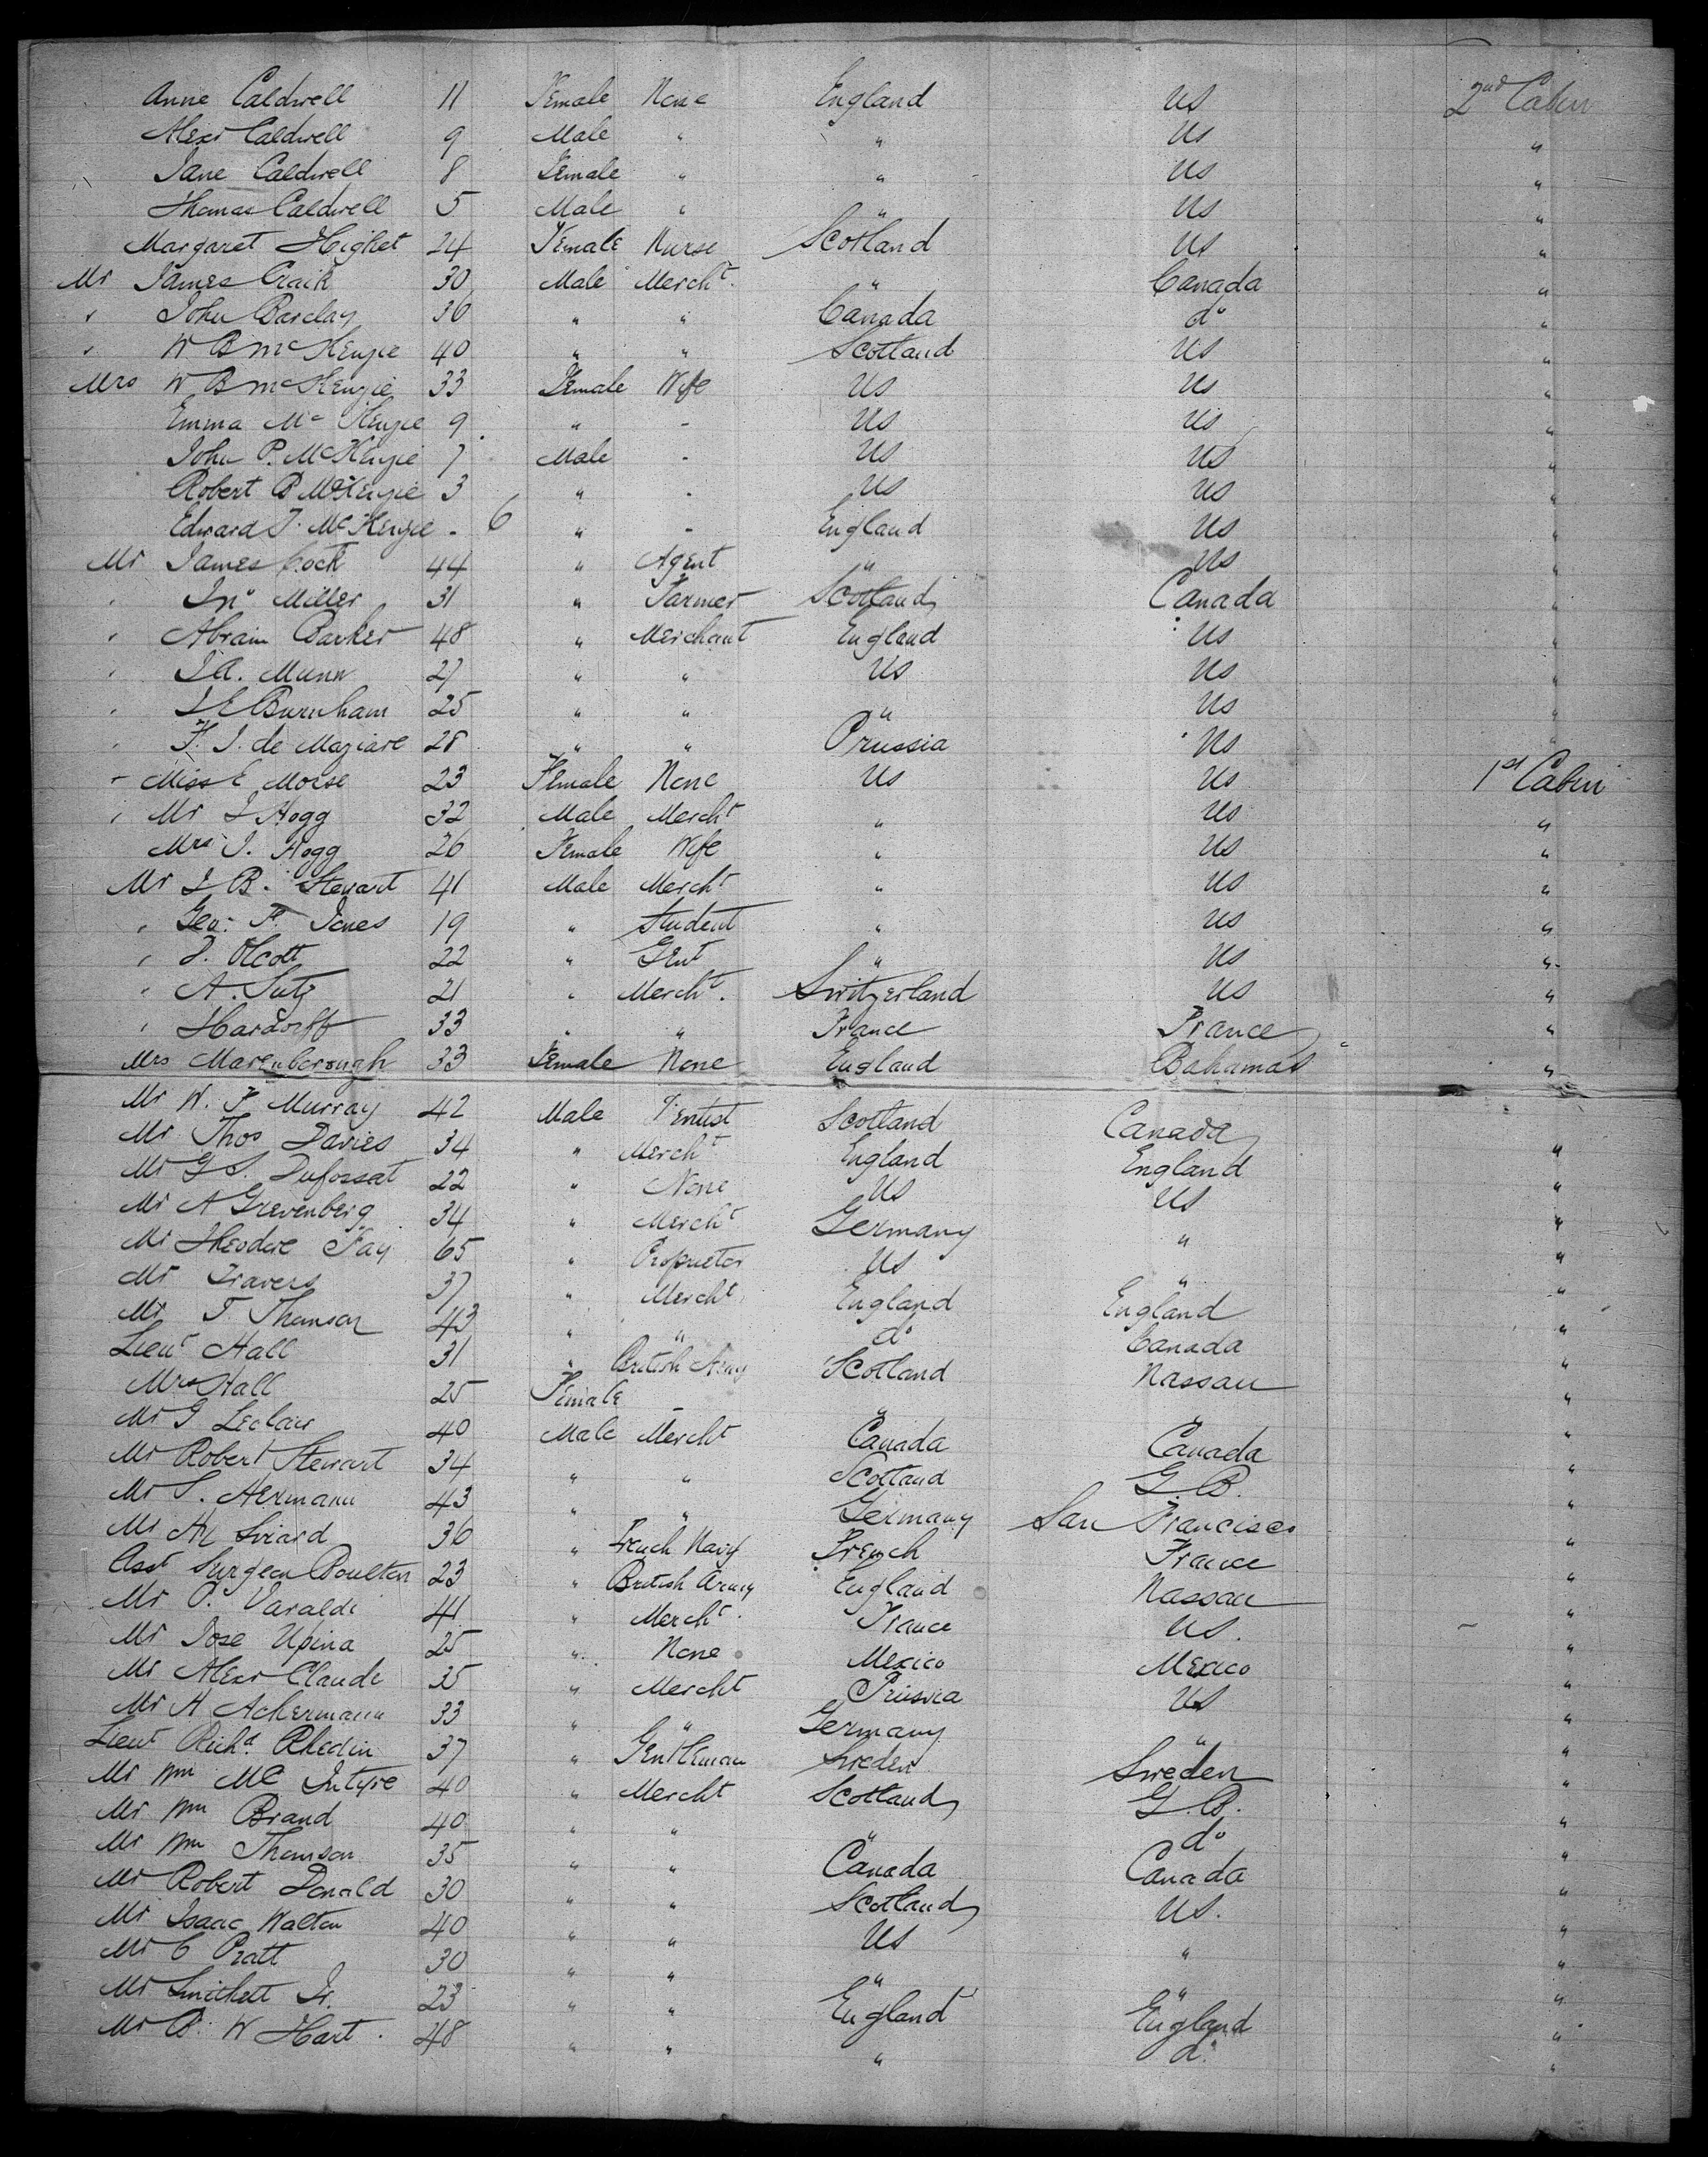 Anne Caldwell 11 Female None England US 2nd Cabin
Alexr Caldwell 9 Male " " US "
Jane Caldwell 8 Female " " US "
Thomas Caldwell 5 Male " " US "
Margaret Highet 24 Female Nurse Scotland US "
Mr James Craik 30 Male Mercht. " Canada "
" John Barclay 36 " " Canada do "
" W B McKenzie 40 " " Scotland US "
Mrs W B McKenzie 33 Female Wife US US "
Emma McKenzie 9 " - US US "
John P. McKenzie 7 Male - US US "
Robert B McKenzie 3 " - US US "
Edward J. McKenzie - 6 " - England US "
Mr James Cock 44 " Agent " US "
" Jno Miller 31 " Farmer Scotland Canada "
" Abraim Barker 48 " Merchant England US "
" J A. Munn 27 " " US US "
" J E Burnham 25 " " " US "
" F. J. de Maziare 28 " " Prussia US "
Miss E Morse 23 Female None US US 1st Cabin
" Mr J Hogg 32 Male Mercht " US "
Mrs J. Hogg 26 Female Wife " US "
Mr J B. Stewart 41 Male Mercht " US "
" Geo: F. Jones 19 " Student " US "
" J. Olcott 22 " Gent " US "
" A. Sutz 21 " Mercht. Switzerland US "
" Hardorff 33 " " France France "
Mrs Marenborough 33 Female None England Bahamas "
Mr W. F Murray 42 Male Dentist Scotland Canada
Mr Thos Davies 34 " Mercht England England "
Mr G S. Dufossat 22 " None US US "
Mr A Grevenberg 34 " Mercht Germany " "
Mr Theodore Fay 65 " Proprietor US " "
Mr Travers 37 " Mercht. England England "
Mr T. Thomson 43 " " do Canada "
Lieut Hall 31 " British Army Scotland Nassau "
Mrs Hall 25 Female - " " "
Mr G Leclair 40 Male Mercht Canada Canada "
Mr Robert Stewart 34 " " Scotland G. B. "
Mr S. Hermann 43 " " Germany San Francisco "
Mr Girard 36 " French Navy French France "
Asst Surgeon Boulton 23 " British Army England Nassau "
Mr P. Varaldi 41 " Mercht. France US. "
Mr Jose Upina 25 " None Mexico Mexico "
Mr Alexr Claude 35 " Mercht Prussia US "
Mr H Ackermann 33 " " Germany " "
Lieut Richd. Rhedin 37 " Gentleman Sweden Sweden "
Mr Wm Mc Intyre 40 " Mercht Scotland G. B. "
Mr Wm Brand 40 " " " do "
Mr Wm Thomson 35 " " Canada Canada "
Mr Robert Donald 30 " " Scotland US. "
Mr Isaac Walton 40 " " US " "
Mr C Pratt 30 " " " " "
Mr Smithett Jr. 23 " " England England "
Mr B. W Hart. 48 " " " do "